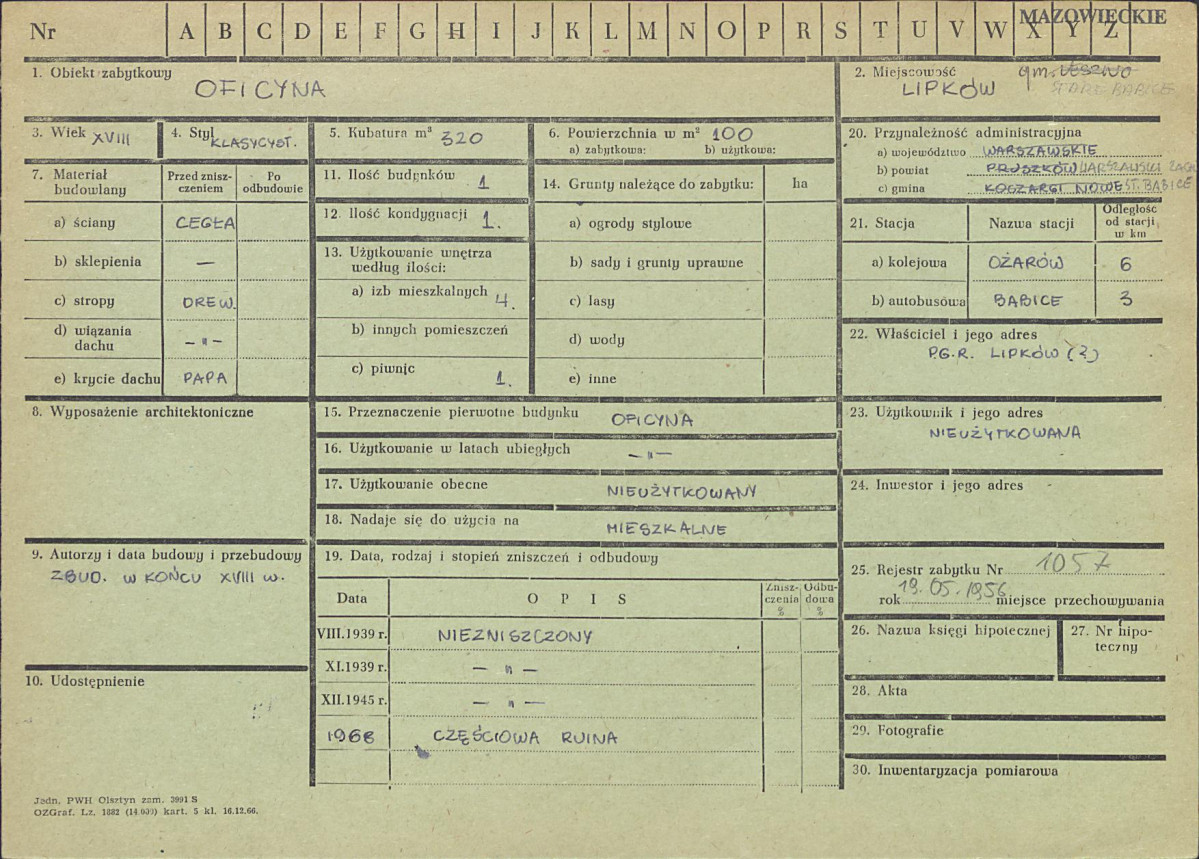 Nr A B C D E F G H I J K L M N O P R S T U V W X Y Z MAZOWIECKIE
1. Obiekt zabytkowy
OFICYNA
2. Miejscowość gm. LESZNO
LIPKÓW STARE BABICE
3. Wiek XVIII
4. Styl KLASYCYST.
5. Kubatura m³ 320
6. Powierzchnia w m² 100
a) zabytkowa: b) użytkowa:
20. Przynależność administracyjna
a) województwo WARSZAWSKIE
b) powiat PRUSZKÓW WARSZAWSKI ZACH
c) gmina KOSZARGI NOWE ST. BABICE
7. Materiał budowlany
Przed znisz-
czeniem
Po
odbudowie
a) ściany CEGŁA
b) sklepienia —
c) stropy DREW.
d) wiązania
dachu — " —
e) krycie dachu PAPA
11. Ilość budynków 1
12. Ilość kondygnacji 1.
13. Użytkowanie wnętrza
według ilości:
a) izb mieszkalnych 4.
b) innych pomieszczeń
c) piwnic 1.
14. Grunty należące do zabytku: ha
a) ogrody stylowe
b) sady i grunty uprawne
c) lasy
d) wody
e) inne
21. Stacja Nazwa stacji Odległość
od stacji
w km
a) kolejowa OŻARÓW 6
b) autobusowa BABICE 3
22. Właściciel i jego adres
P.G.R. LIPKÓW (?)
8. Wyposażenie architektoniczne
15. Przeznaczenie pierwotne budynku OFICYNA
16. Użytkowanie w latach ubiegłych — " —
17. Użytkowanie obecne NIEUŻYTKOWANY
18. Nadaje się do użycia na MIESZKALNE
23. Użytkownik i jego adres
NIEUŻYTKOWANA
24. Inwestor i jego adres
9. Autorzy i data budowy i przebudowy
ZBUD. W KOŃCU XVIII w.
10. Udostępnienie
19. Data, rodzaj i stopień zniszczeń i odbudowy
Data O P I S Znisz-
czenia
% Odbu-
dowa
%
VIII.1939 r. NIEZNISZCZONY
XI.1939 r. — " —
XII.1945 r. — " —
1966 CZĘŚCIOWA RUINA
25. Rejestr zabytku Nr 1057
rok 19.05.1956 miejsce przechowywania
26. Nazwa księgi hipotecznej
27. Nr hipo-
teczny
28. Akta
29. Fotografie
30. Inwentaryzacja pomiarowa
Jedn. PWH Olsztyn zam. 3991 S
OZGraf. Lz. 1882 (14.000) kart. 5 kl. 16.12.66.